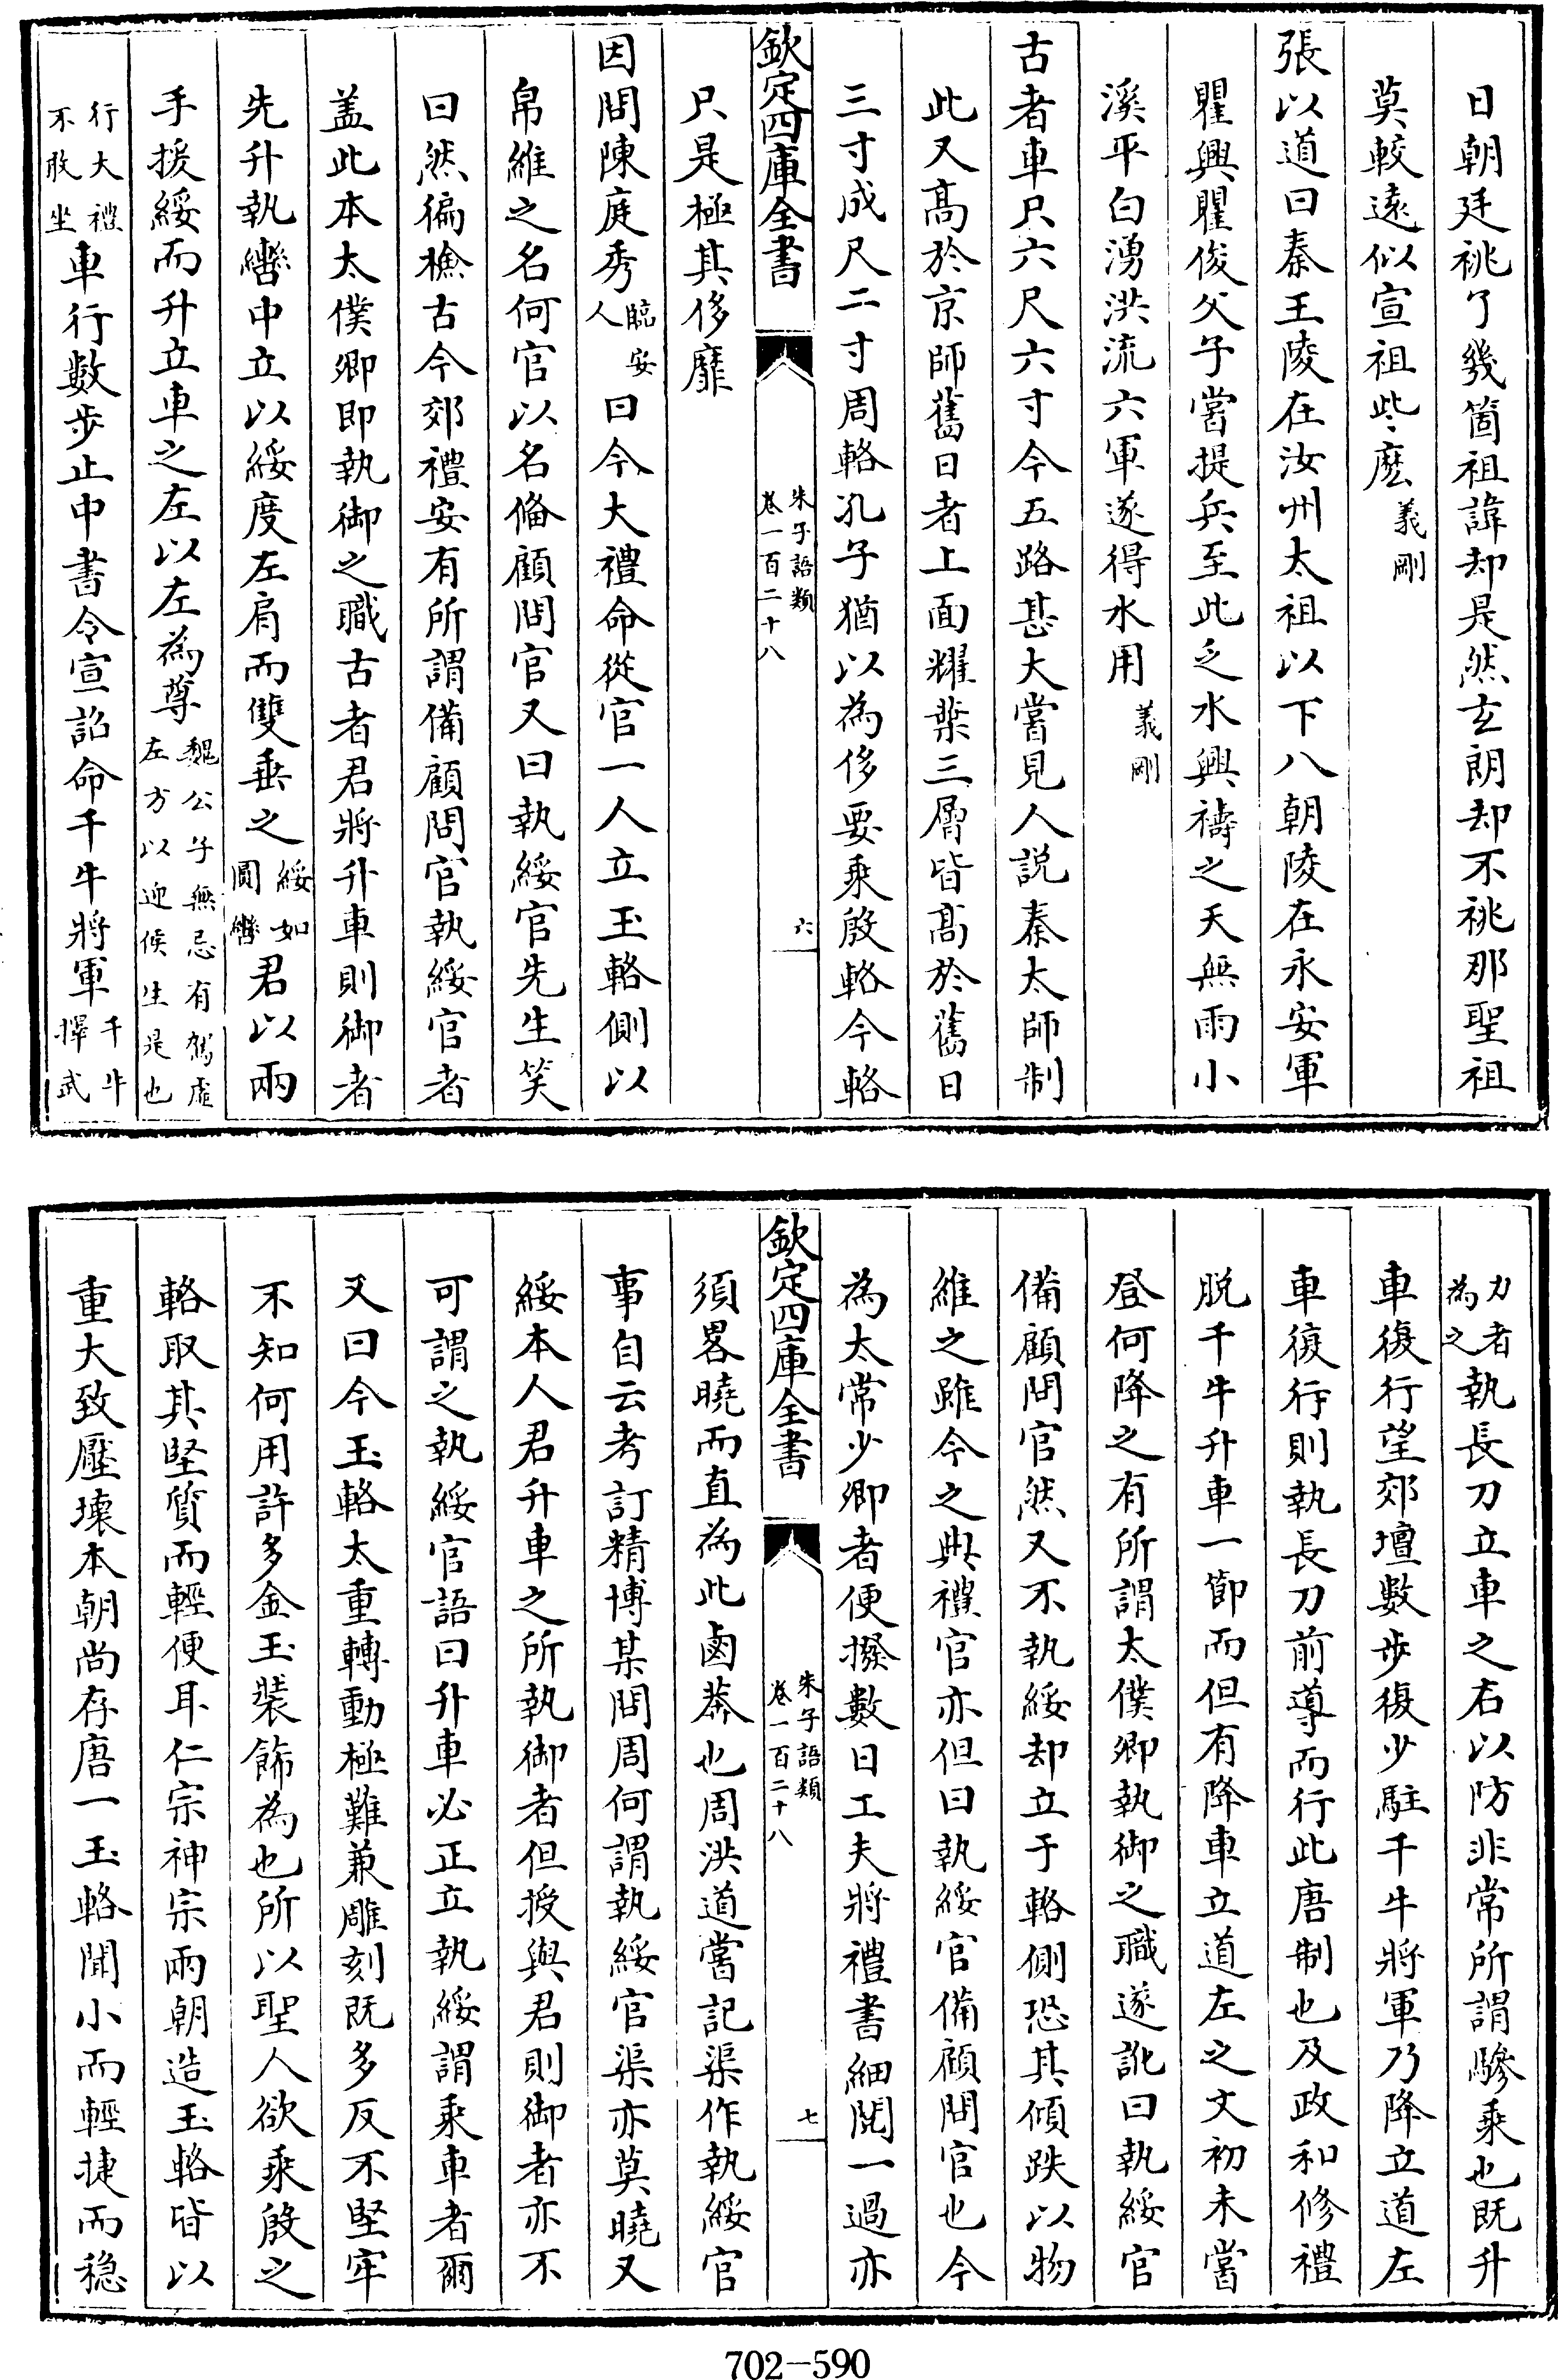 日朝廷祧了幾箇祖諱却是然玄朗却不祧那聖祖
莫較遠似宣祖些麽義剛
張以道曰秦王陵在汝州太祖以下八朝陵在永安軍
瞿興瞿俊父子嘗提兵至此乏水興禱之天無雨小
溪平白湧洪流六軍遂得水用義剛
古者車只六尺六寸今五路甚大嘗見人説秦太師制
此又髙於京師舊日者上面耀葉三層皆髙於舊日
三寸成尺二寸周輅孔子猶以為侈要乘殷輅今輅
欽定四庫全書
朱子語類
卷一百二十八
六
只是極其侈靡
因問陳庭秀臨安人曰今大禮命從官一人立玉輅側以
帛維之名何官以名俻顧問官又曰執綏官先生笑
曰然徧檢古今郊禮安有所謂備顧問官執綏官者
盖此本太僕卿即執御之職古者君將升車則御者
先升執轡中立以綏度左肩而雙垂之綏如圓轡君以兩
手援綏而升立車之左以左為尊魏公子無忌有駕虛左方以迎侯生是也
行大禮不敢坐車行數步止中書令宣詔命千牛將軍千牛擇武
力者為之執長刀立車之右以防非常所謂驂乘也既升
車復行望郊壇數步復少駐千牛將軍乃降立道左
車復行則執長刀前導而行此唐制也及政和修禮
脱千牛升車一節而但有降車立道左之文初未嘗
登何降之有所謂太僕卿執御之職遂訛曰執綏官
備顧問官然又不執綏却立于輅側恐其傾跌以物
維之雖今之典禮官亦但曰執綏官備顧問官也今
為太常少卿者便撥數日工夫將禮書細閱一過亦
欽定四庫全書
朱子語類
卷一百二十八
七
須畧曉而直為此鹵莽也周洪道嘗記渠作執綏官
事自云考訂精博某問周何謂執綏官渠亦莫曉又
綏本人君升車之所執御者但授與君則御者亦不
可謂之執綏官語曰升車必正立執綏謂乘車者爾
又曰今玉輅太重轉動極難兼雕刻既多反不堅牢
不知何用許多金玉裝飾為也所以聖人欲乘殷之
輅取其堅質而輕便耳仁宗神宗兩朝造玉輅皆以
重大致壓壞本朝尚存唐一玉輅聞小而輕捷而穏
702-590